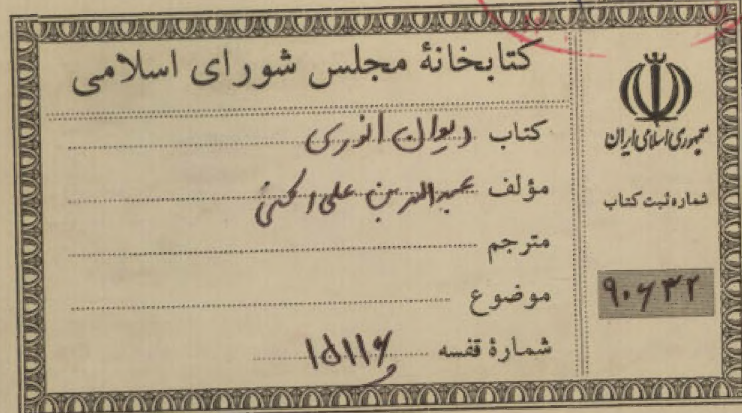 کتابخانهٔ مجلس شورای اسلامی
کتاب دیوان انوری
مؤلف عبدالله بن علی
مترجم
موضوع
شمارهٔ قفسه ۱۵۱۱۶
جمهوری اسلامی ایران
شماره ثبت کتاب
۹۰۶۳۲